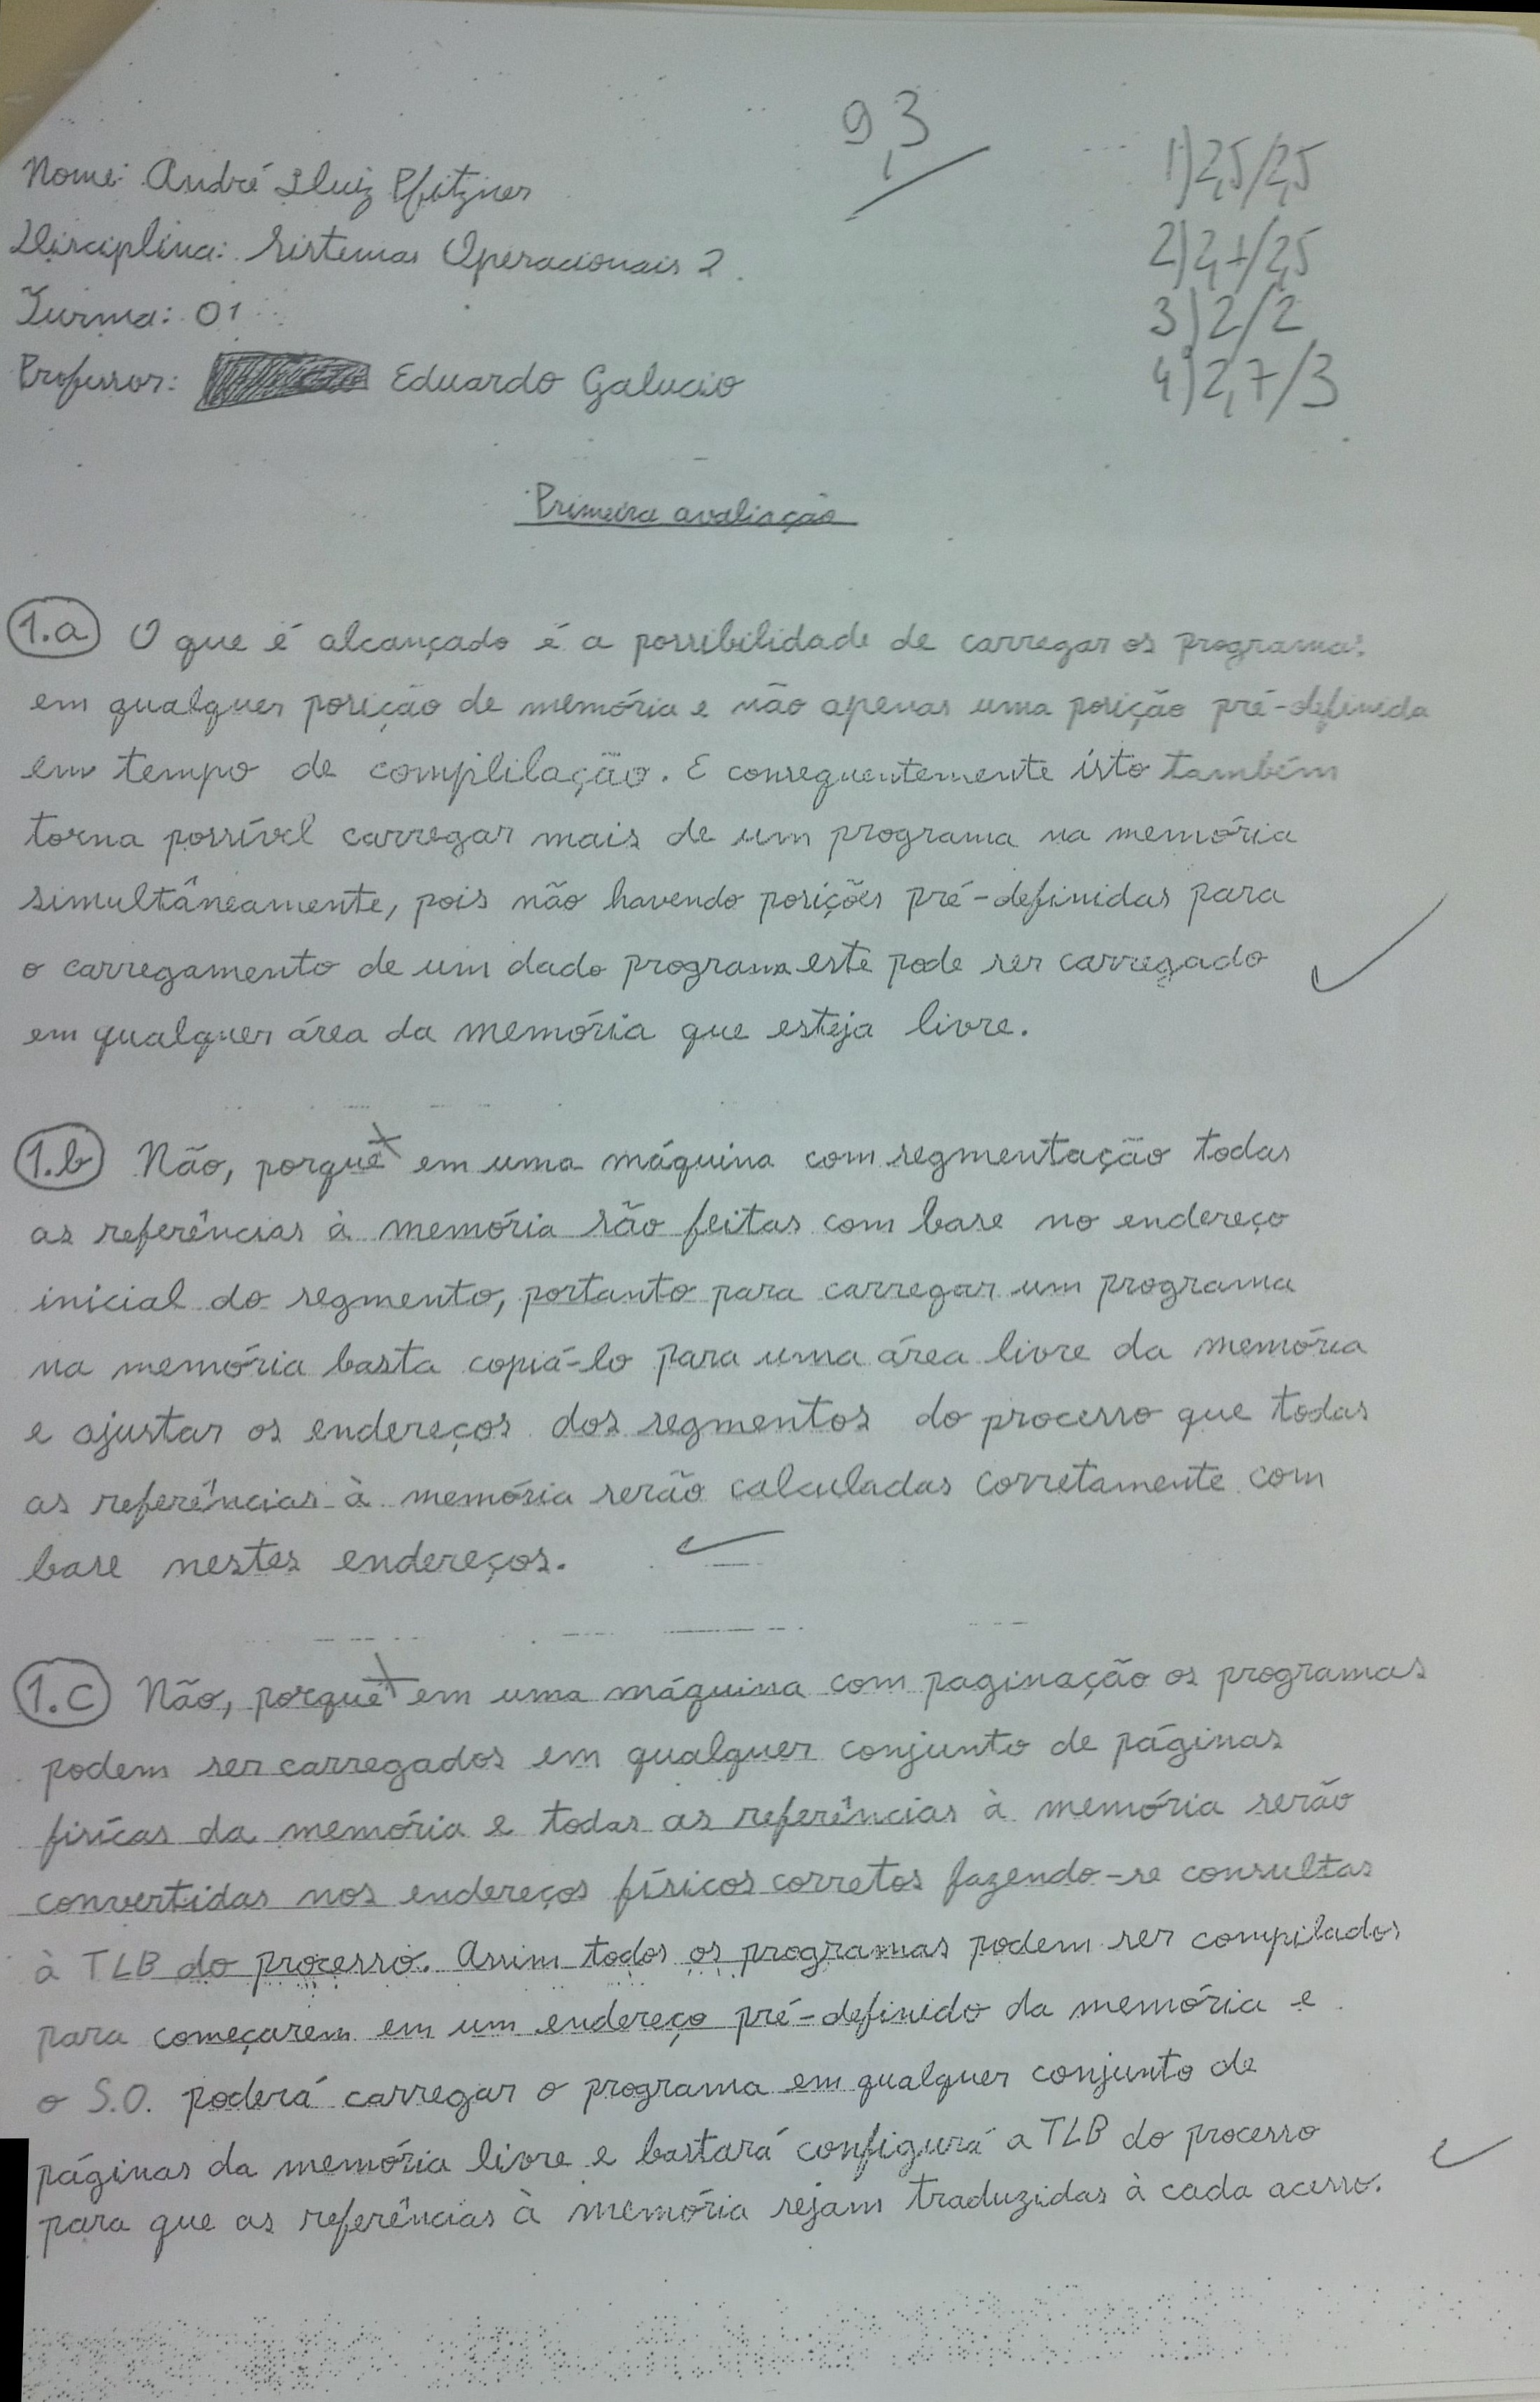 9,3
Nome: André Lluiz Pfitzner
Disciplina: Sistemas Operacionais 2.
Turma: 01
Professor: Eduardo Galucio
1) 2,5/2,5
2) 2,1/2,5
3) 2/2
4) 2,7/3
Primeira avaliação
1.a O que é alcançado é a possibilidade de carregar os programas
em qualquer posição de memória e não apenas uma posição pré-definida
em tempo de complilação. E consequentemente isto também
torna possível carregar mais de um programa na memória
simultâneamente, pois não havendo posições pré-definidas para
o carregamento de um dado programa este pode ser carregado
em qualquer área da memória que esteja livre.
1.b Não, porque em uma máquina com segmentação todas
as referências à memória são feitas com base no endereço
inicial do segmento, portanto para carregar um programa
na memória basta copiá-lo para uma área livre da memória
e ajustar os endereços dos segmentos do processo que todas
as referências à memória serão calculadas corretamente com
base nestes endereços.
1.c Não, porque em uma máquina com paginação os programas
podem ser carregados em qualquer conjunto de páginas
fisícas da memória e todas as referências à memória serão
convertidas nos endereços físicos corretos fazendo-se consultas
à TLB do processo. Assim todos os programas podem ser compilados
para começarem em um endereço pré-definido da memória e
o S.O. poderá carregar o programa em qualquer conjunto de
páginas da memória livre e bastará configurá a TLB do processo
para que as referências à memória sejam traduzidas à cada acesso.